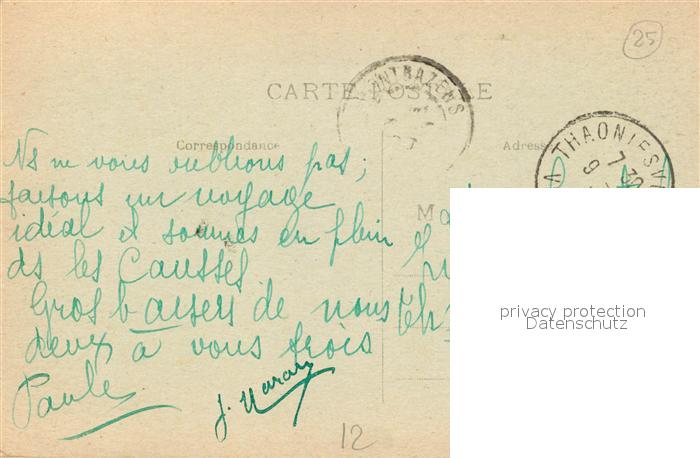 25
CARTE POSTALE
Correspondance
Adresse
THAON LES V
7 30
9
Ns ne vous oublions pas;
faisons un voyage
idéal et sommes en plein
ds les Causses
Gros baisers de nous
deux à vous trois
Paule
M
privacy protection
Datenschutz
12